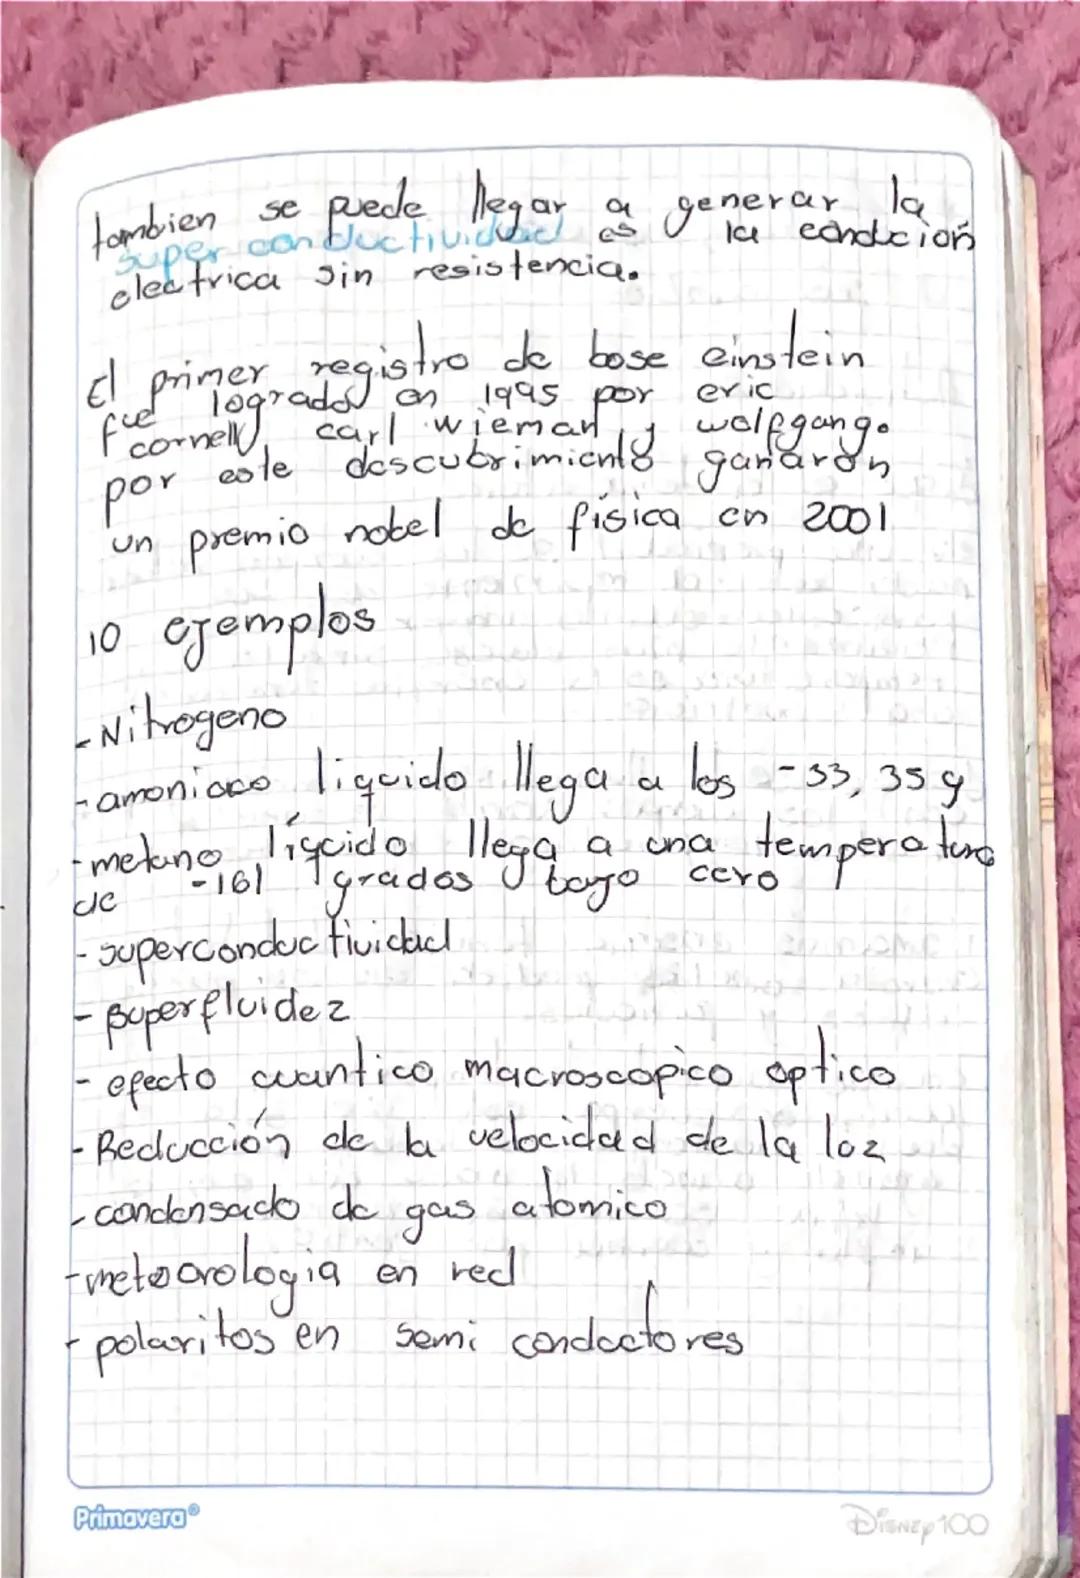 tambien se puede llegar a generar la
super conductividad es la conducion
electrica sin resistencia.
El primer registro de bose einstein
fue logrado en 1995 por eric
cornell, carl wieman y wolfgang.
por este descubrimiento ganaron
un premio nobel de física en 2001
10 ejemplos
- Nitrogeno
- amoniaco liquido llega a los -33, 35 y
- metano líquido llega a una temperatura
de -161 grados bajo cero
- superconductividad
- superfluidez
- efecto cuantico macroscopico optico
- Reducción de la velocidad de la luz
- condensado de gas atomico
- meteorologia en red
- polaritos en semi conductores
Primavera®
DISNEY 100